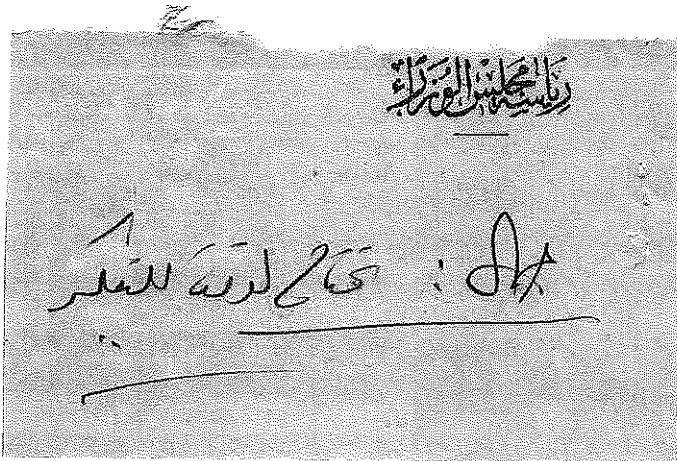 رئاسة مجلس الوزراء
: تحتاج لدقة للتفكير